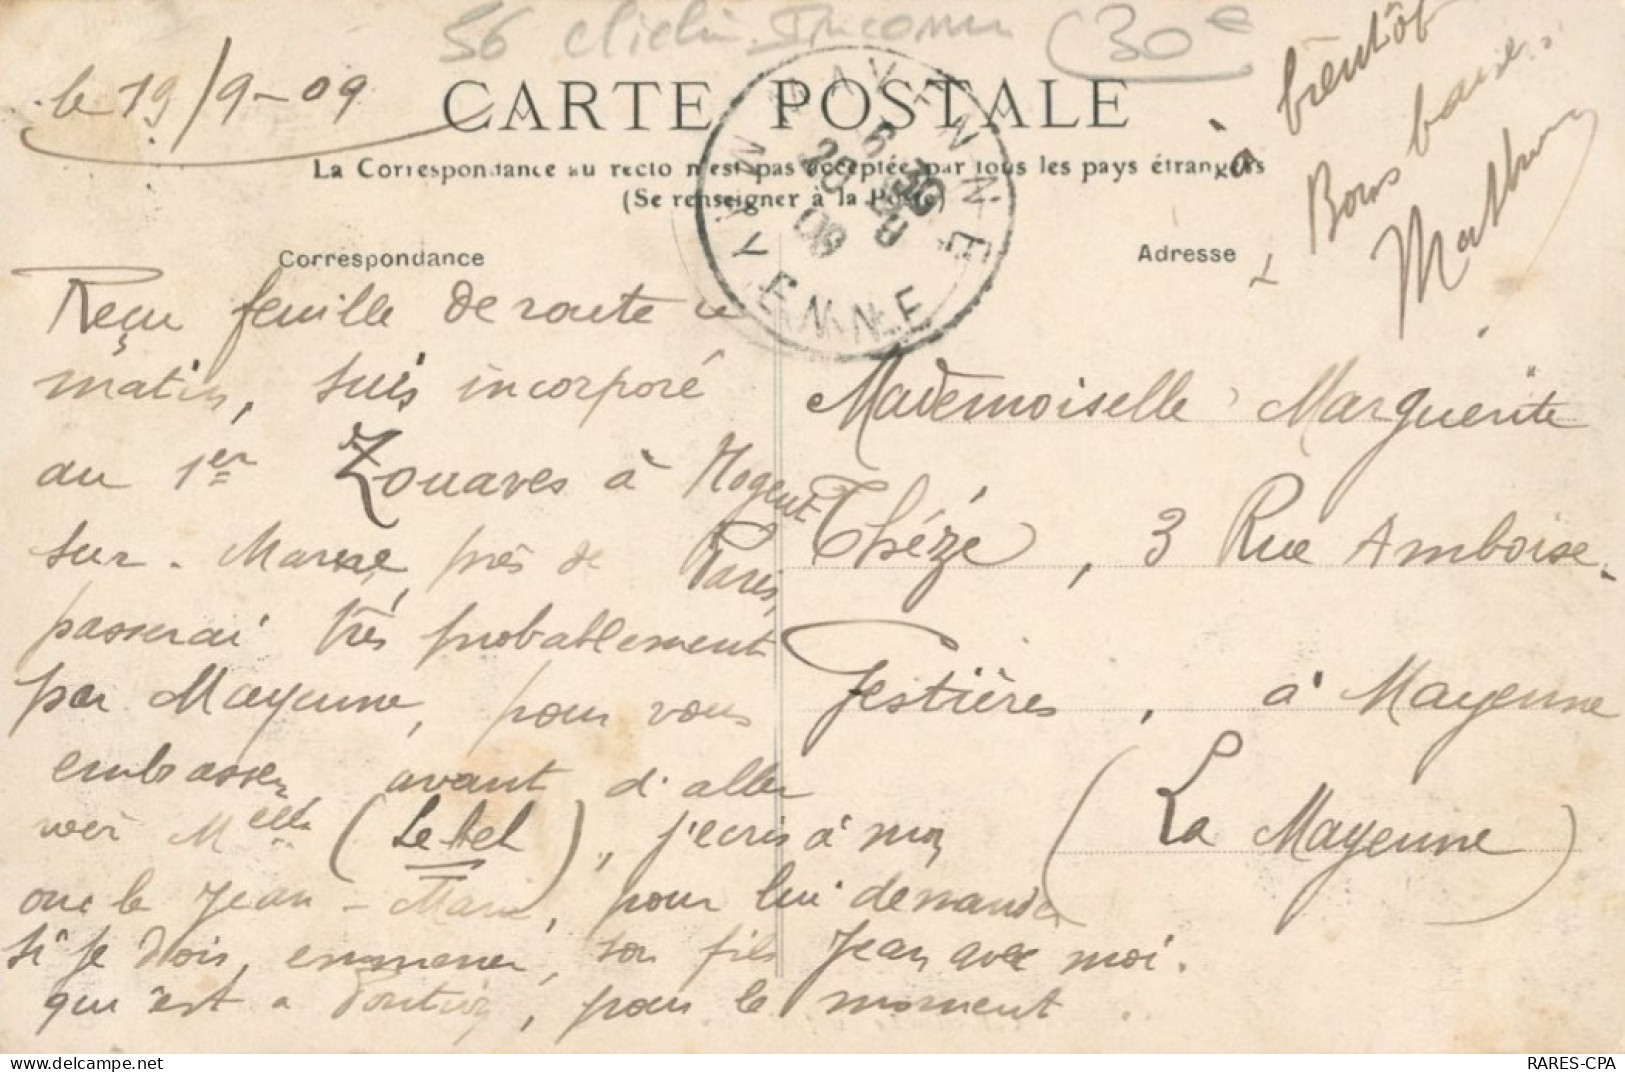 56 cliché Inconnu (30€
le 19/9-09
CARTE POSTALE
La Correspondance au recto n'est pas acceptée par tous les pays étrangers
(Se renseigner à la Poste)
Correspondance
Adresse
MAYENNE
MAYENNE
5 30
20 9
09
à bientôt
Bons baisers
Mathurin
Reçu feuille de route ce
matin, suis incorporé
au 1er Zouaves à Nogent
sur-Marne, près de Paris,
passerai très probablement
par Mayenne, pour vous
embrasser, avant d'aller
voir Melle (Lebel), j'écris à mon
oncle Jean-Marie, pour lui demander
si je dois, emmener, son fils Jean avec moi.
qui est a Pontivy, pour le moment
Mademoiselle Marguerite
Thézé, 3 Rue Amboise
Jestières, à Mayenne
(La Mayenne)
RARES-CPA